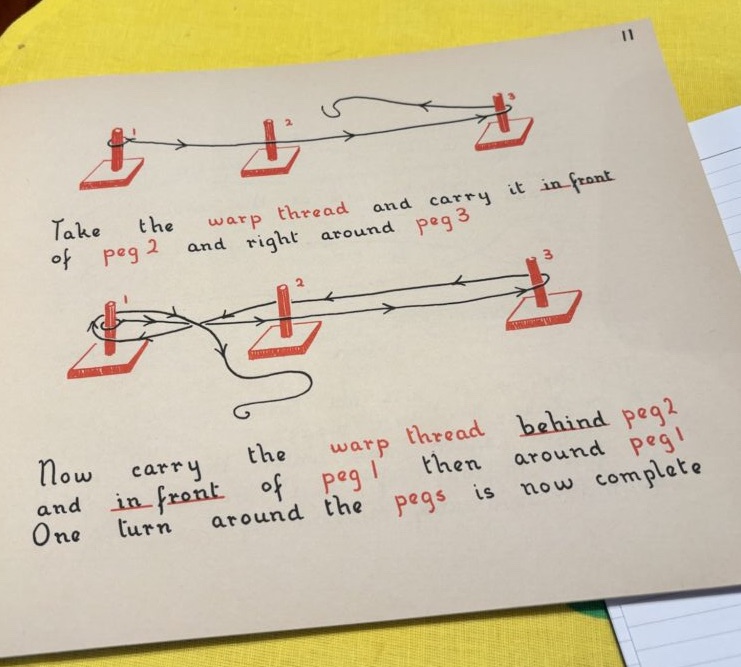 11
1 2 3
Take the warp thread and carry it in front
of peg 2 and right around peg 3
1 2 3
Now carry the warp thread behind peg 2
and in front of peg 1 then around peg 1
One turn around the pegs is now complete